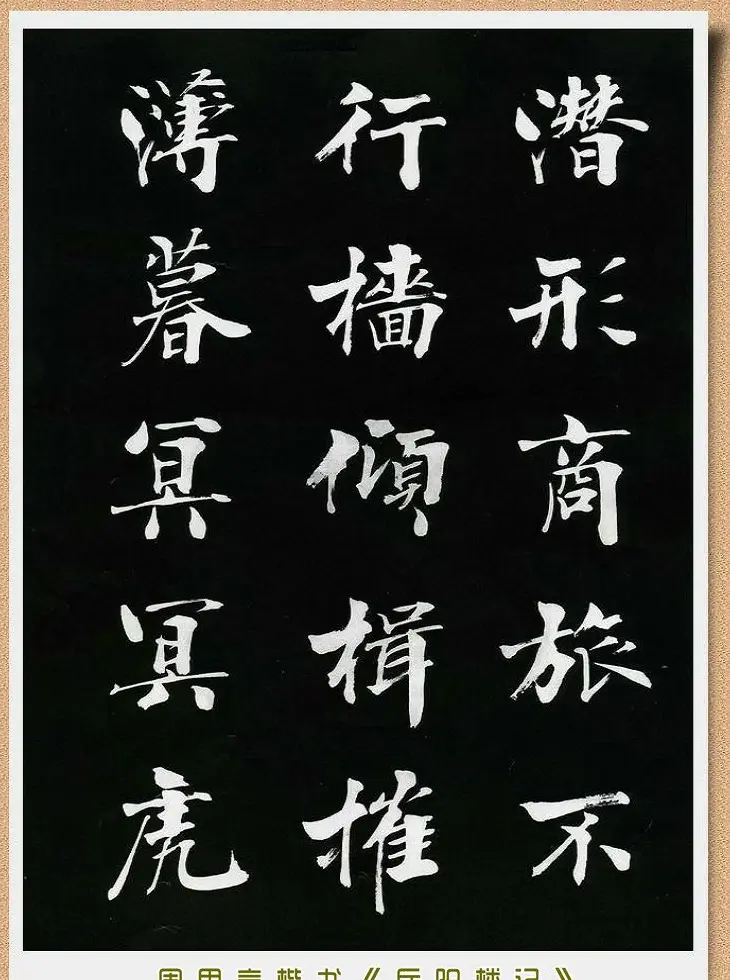 潜形商旅不
行檣傾楫摧
薄暮冥冥虎
周思言楷书《岳阳楼记》